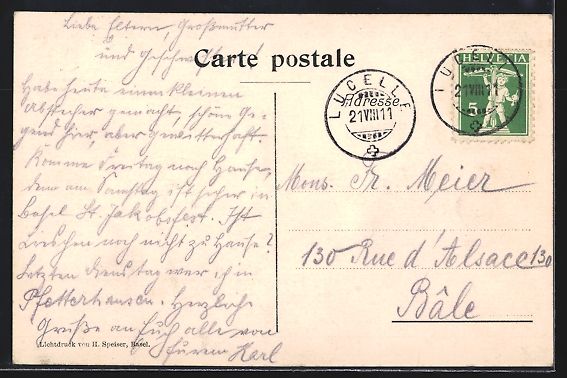 Liebe Eltern, Großmutter
und Geschwister!
Carte postale
Habe heute einen kleinen
Abstecher gemacht, schöne Ge-
gend hier, aber gewitterhaft.
Komme Freitag nach Hause,
denn am Samstag ist sicher in
Basel St. Jakobsfest. Ist
Lieschen noch nicht zu Hause?
Letzten Dienstag war ich in
Pfetterhausen. Herzliche
Grüße an Euch alle von
Eurem Karl
Lichtdruck von H. Speiser, Basel.
LUCELLE
Adresse
21 VIII 11
HELVETIA
5
LUCELLE
21 VIII 11
Mons. Fr. Meier
130 Rue d'Alsace 130
Bâle